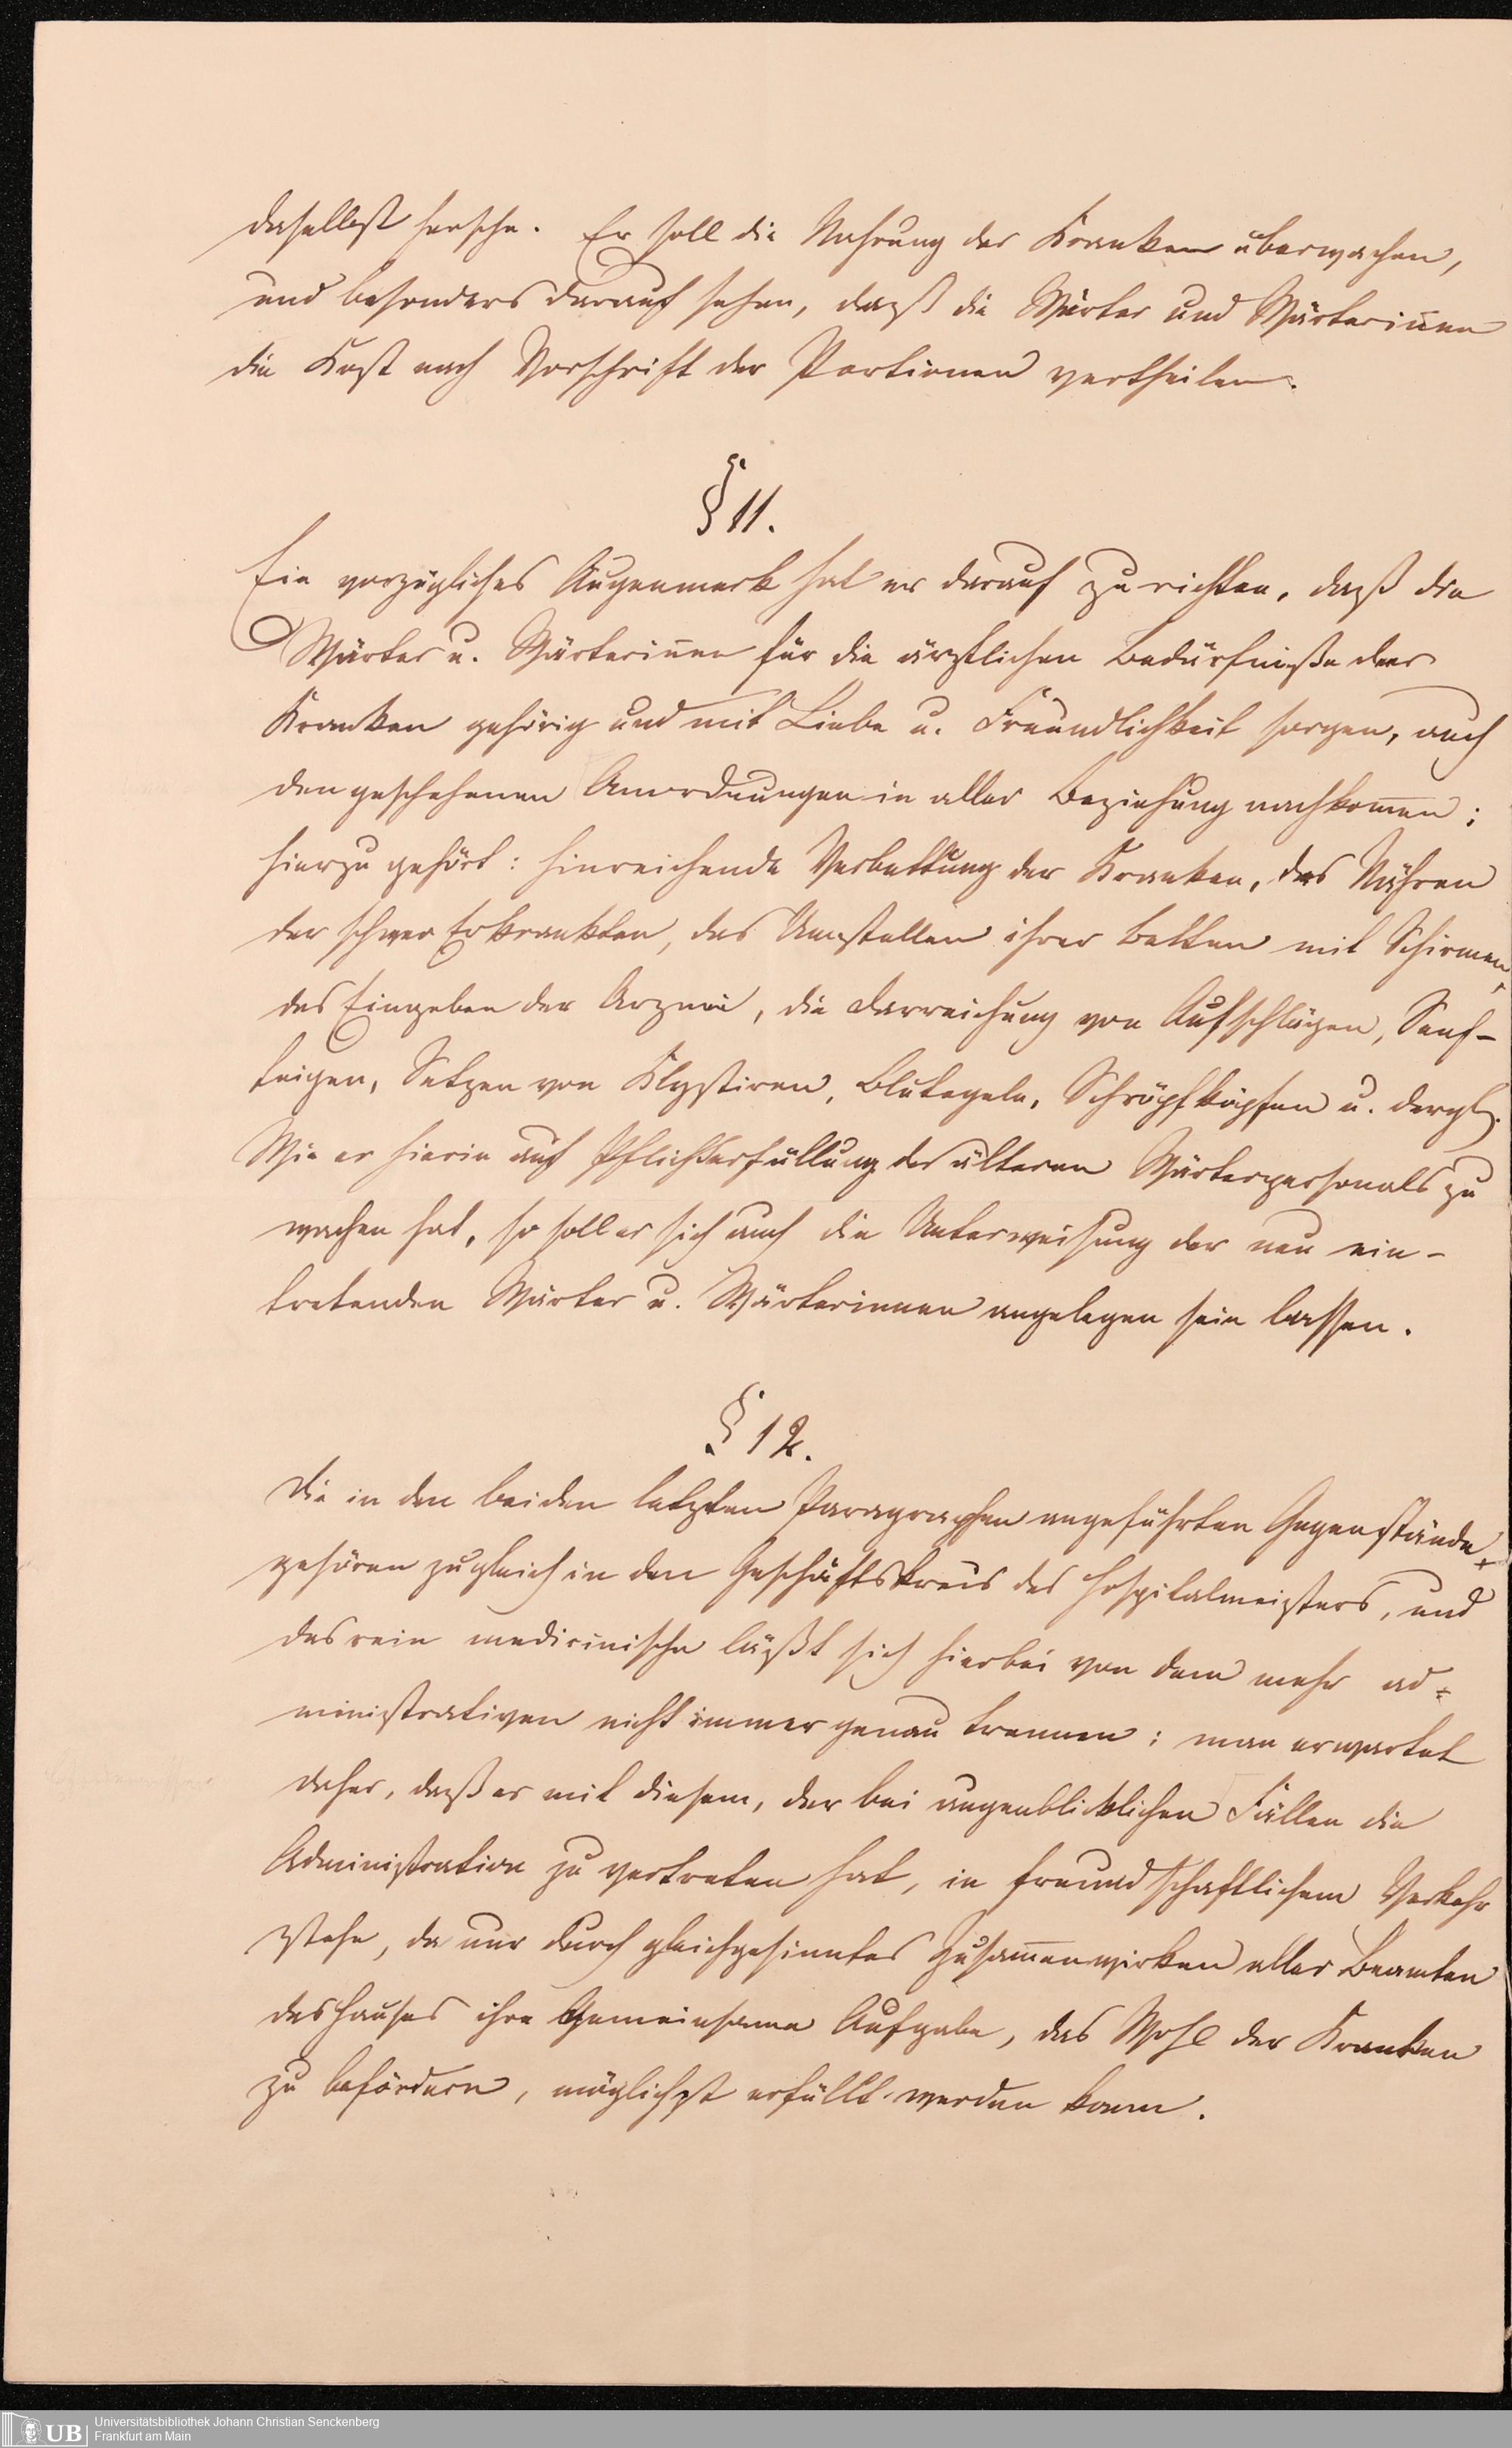 daselbst hersche. Er soll die Nahrung der Kranken überwachen,
und besonders darauf sehen, dass die Wärter und Wärterinen
die Kost nach Vorschrift der Portionen vertheilen.
§ 11.
Ein vorzügliches Augenmerk hat er darauf zu richten, daß die
Wärter u. Wärterinen für die ärztlichen Bedürfniße der
Kranken gehörig und mit Liebe u. Freundlichkeit sorgen, auch
den geschehenen Anordnungen in aller Beziehung nachkomen;
hierzu gehört: hinreichende Verbettung der Kranken, das Nähren
der schwer Erkrankten, das Umstellen ihrer Betten mit Schirmen,
das Eingeben der Arznei, die Darreichung von Aufschlägen, Senf-
teigen, Setzen von Klystiren, Blutegeln, Schröpfköpfen u. dergl.
Wie er hierin auf Pflichterfüllung des älteren Wärterpersonals zu
wachen hat, so soll er sich auch die Unterweisung der neu ein-
tretenden Wärter u. Wärterinnen angelegen sein lassen.
§ 12.
Die in den beiden letzten Paragraphen angeführten Gegenstände,
gehören zugleich in den Geschäftskreis des Hospitalmeisters, und
das rein medicinische läßt sich hierbei von dem mehr ad=
ministrativen nicht immer genau trennen; man erwartet
daher, daß er mit diesem, der bei augenblicklichen Fällen die
Administration zu vertreten hat, in freundschaftlichem Verkehr
stehe, da nur durch gleichgesinntes Zusamenwirken aller Beamten
des Hauses ihre Gemeinsame Aufgabe, das Wohl der Kranken
zu befördern, möglichst erfüllt werden kann.
UB Universitätsbibliothek Johann Christian Senckenberg
Frankfurt am Main